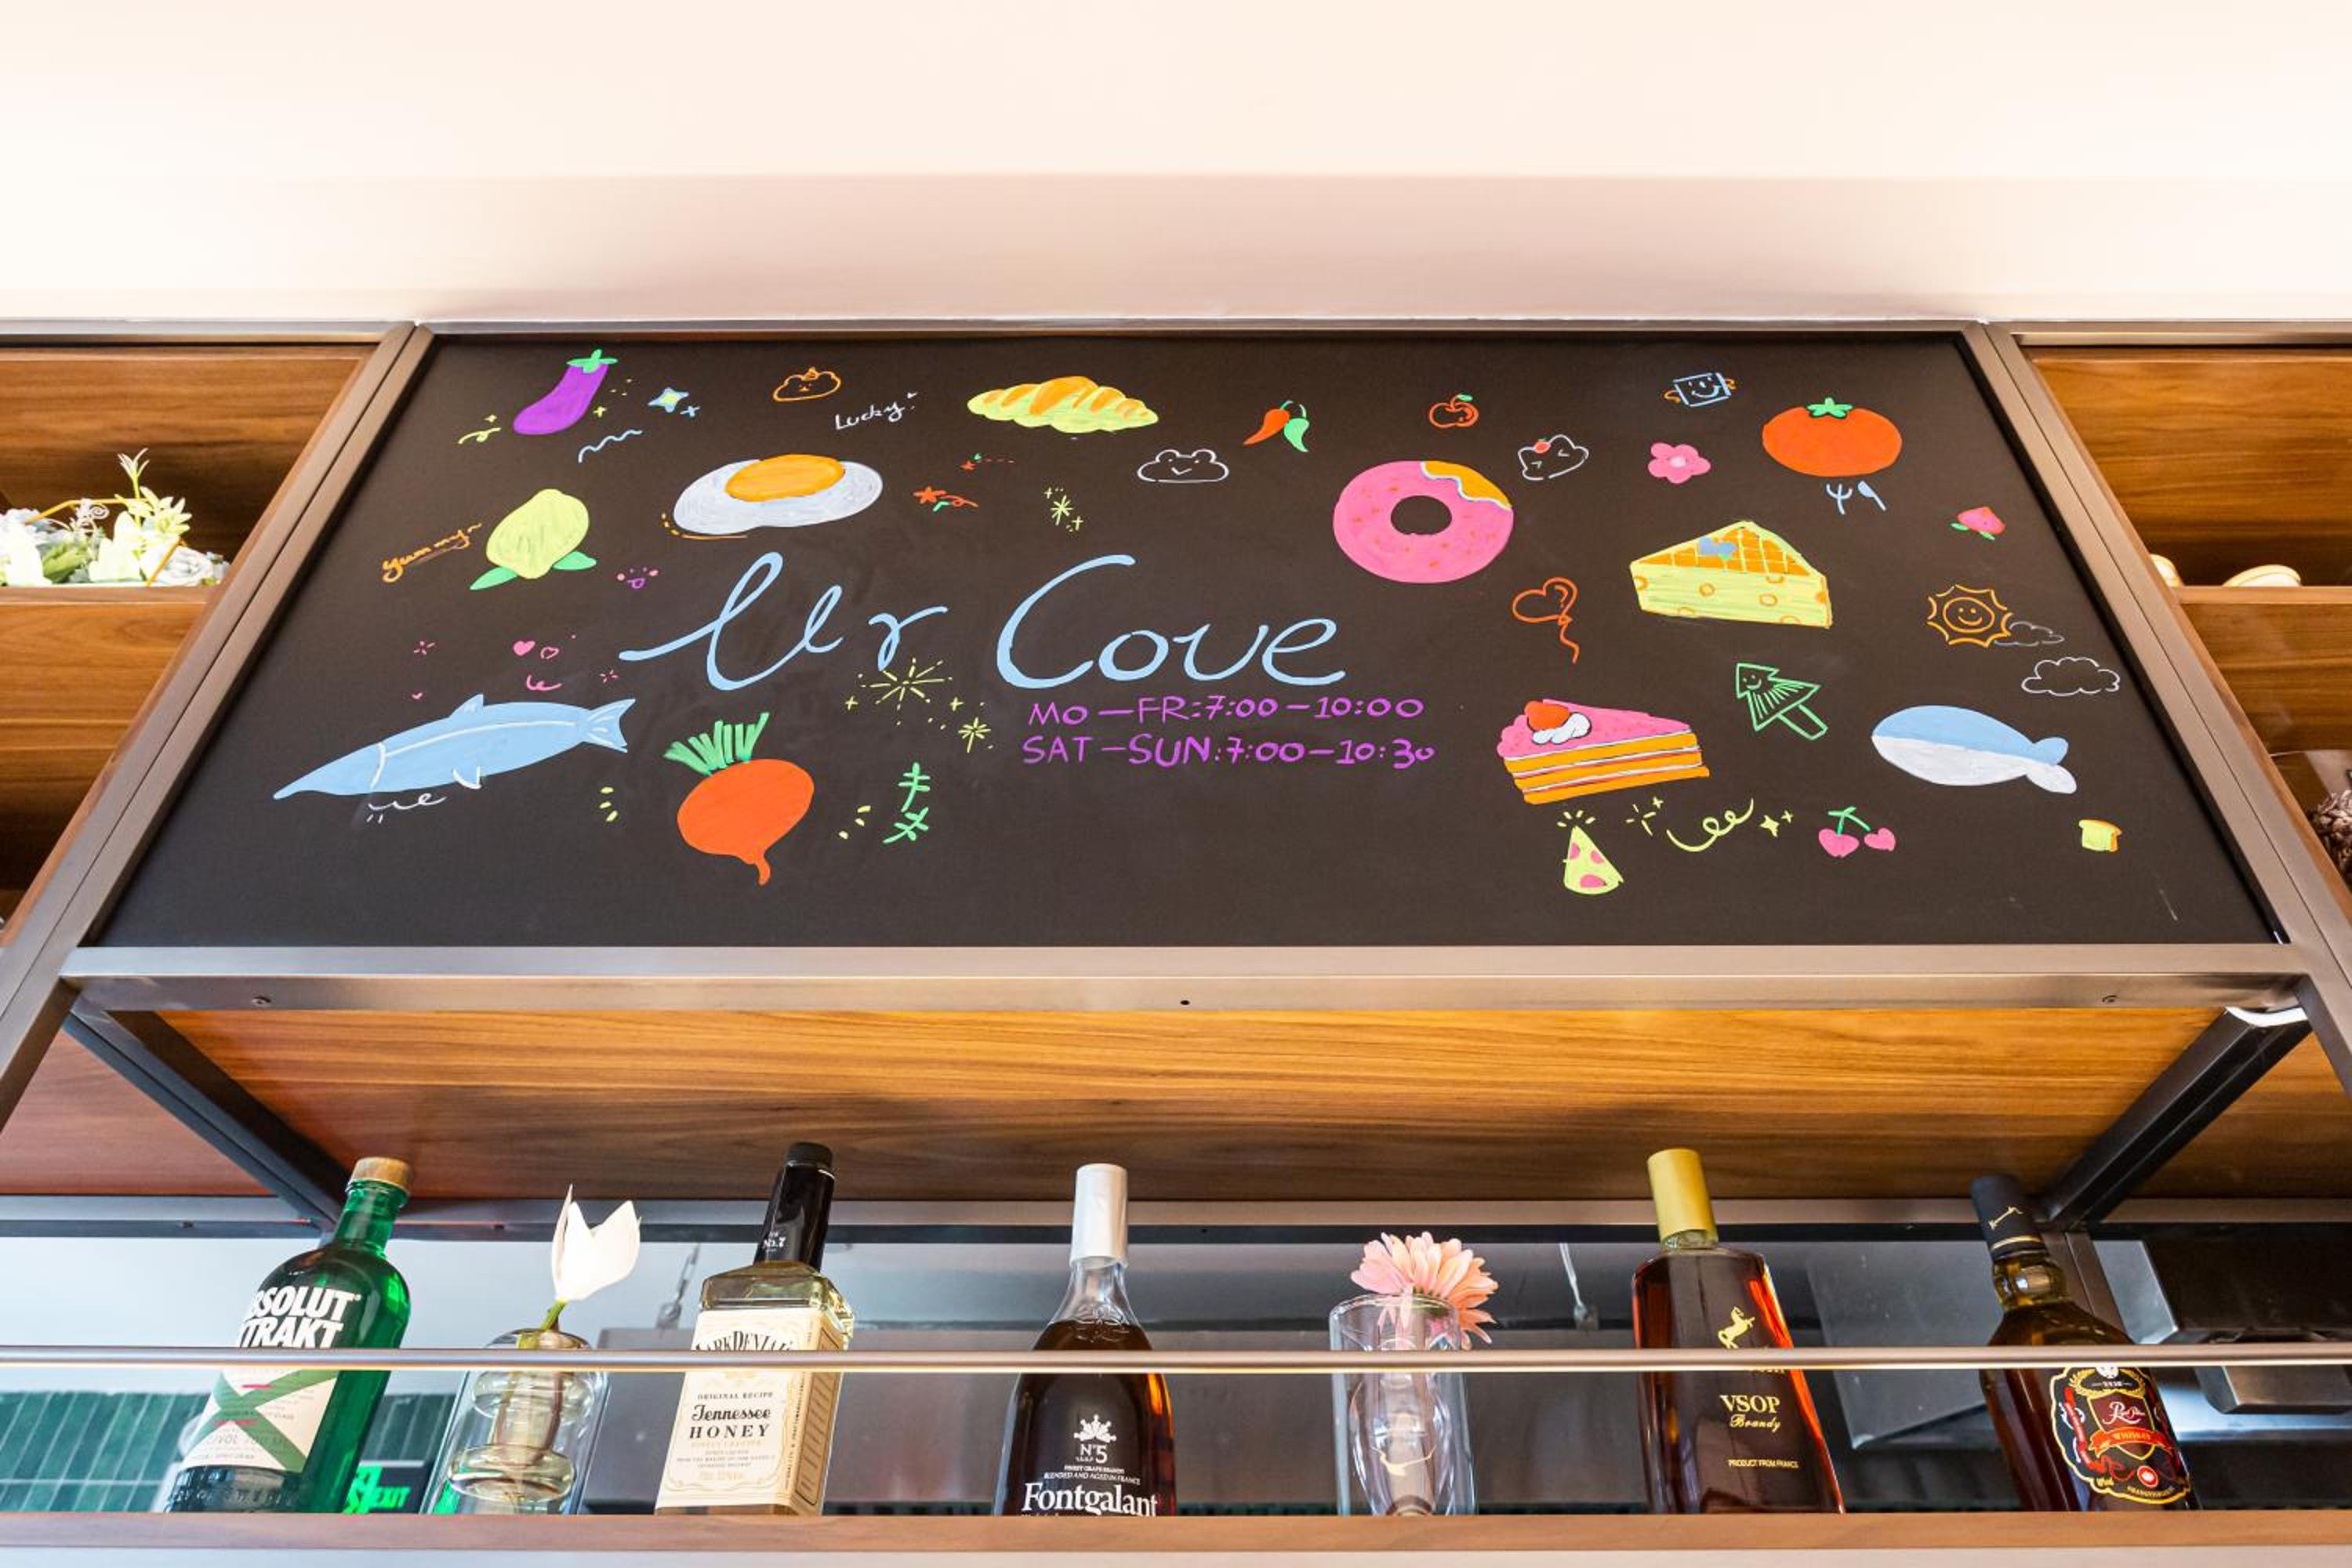 Lucky!
yummy~
Ur Cove
MO—FR:7:00—10:00
SAT—SUN:7:00—10:30
ABSOLUT
No.7
ORIGINAL RECIPE
Tennessee
HONEY
N°5
V.S.O.P
BLENDED AND AGED IN FRANCE
Fontgalant
VSOP
Brandy
PRODUCT FROM FRANCE
WHISKY
EXIT